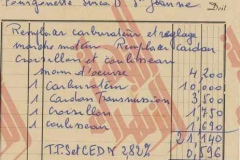 Fourgonnette Simca D. St Jeanne
Doit
Remplacer carburateur et réglage
marche moteur Remplacer Cardan
Croisillon et coulisseau
main d'oeuvre 4,200
1 Carburateur 10,000
1 Cardan Transmission 3,500
1 Croisillon 1,750
1 coulisseau 1,690
21,140
T.P.S et CED N 2,82% 0,596